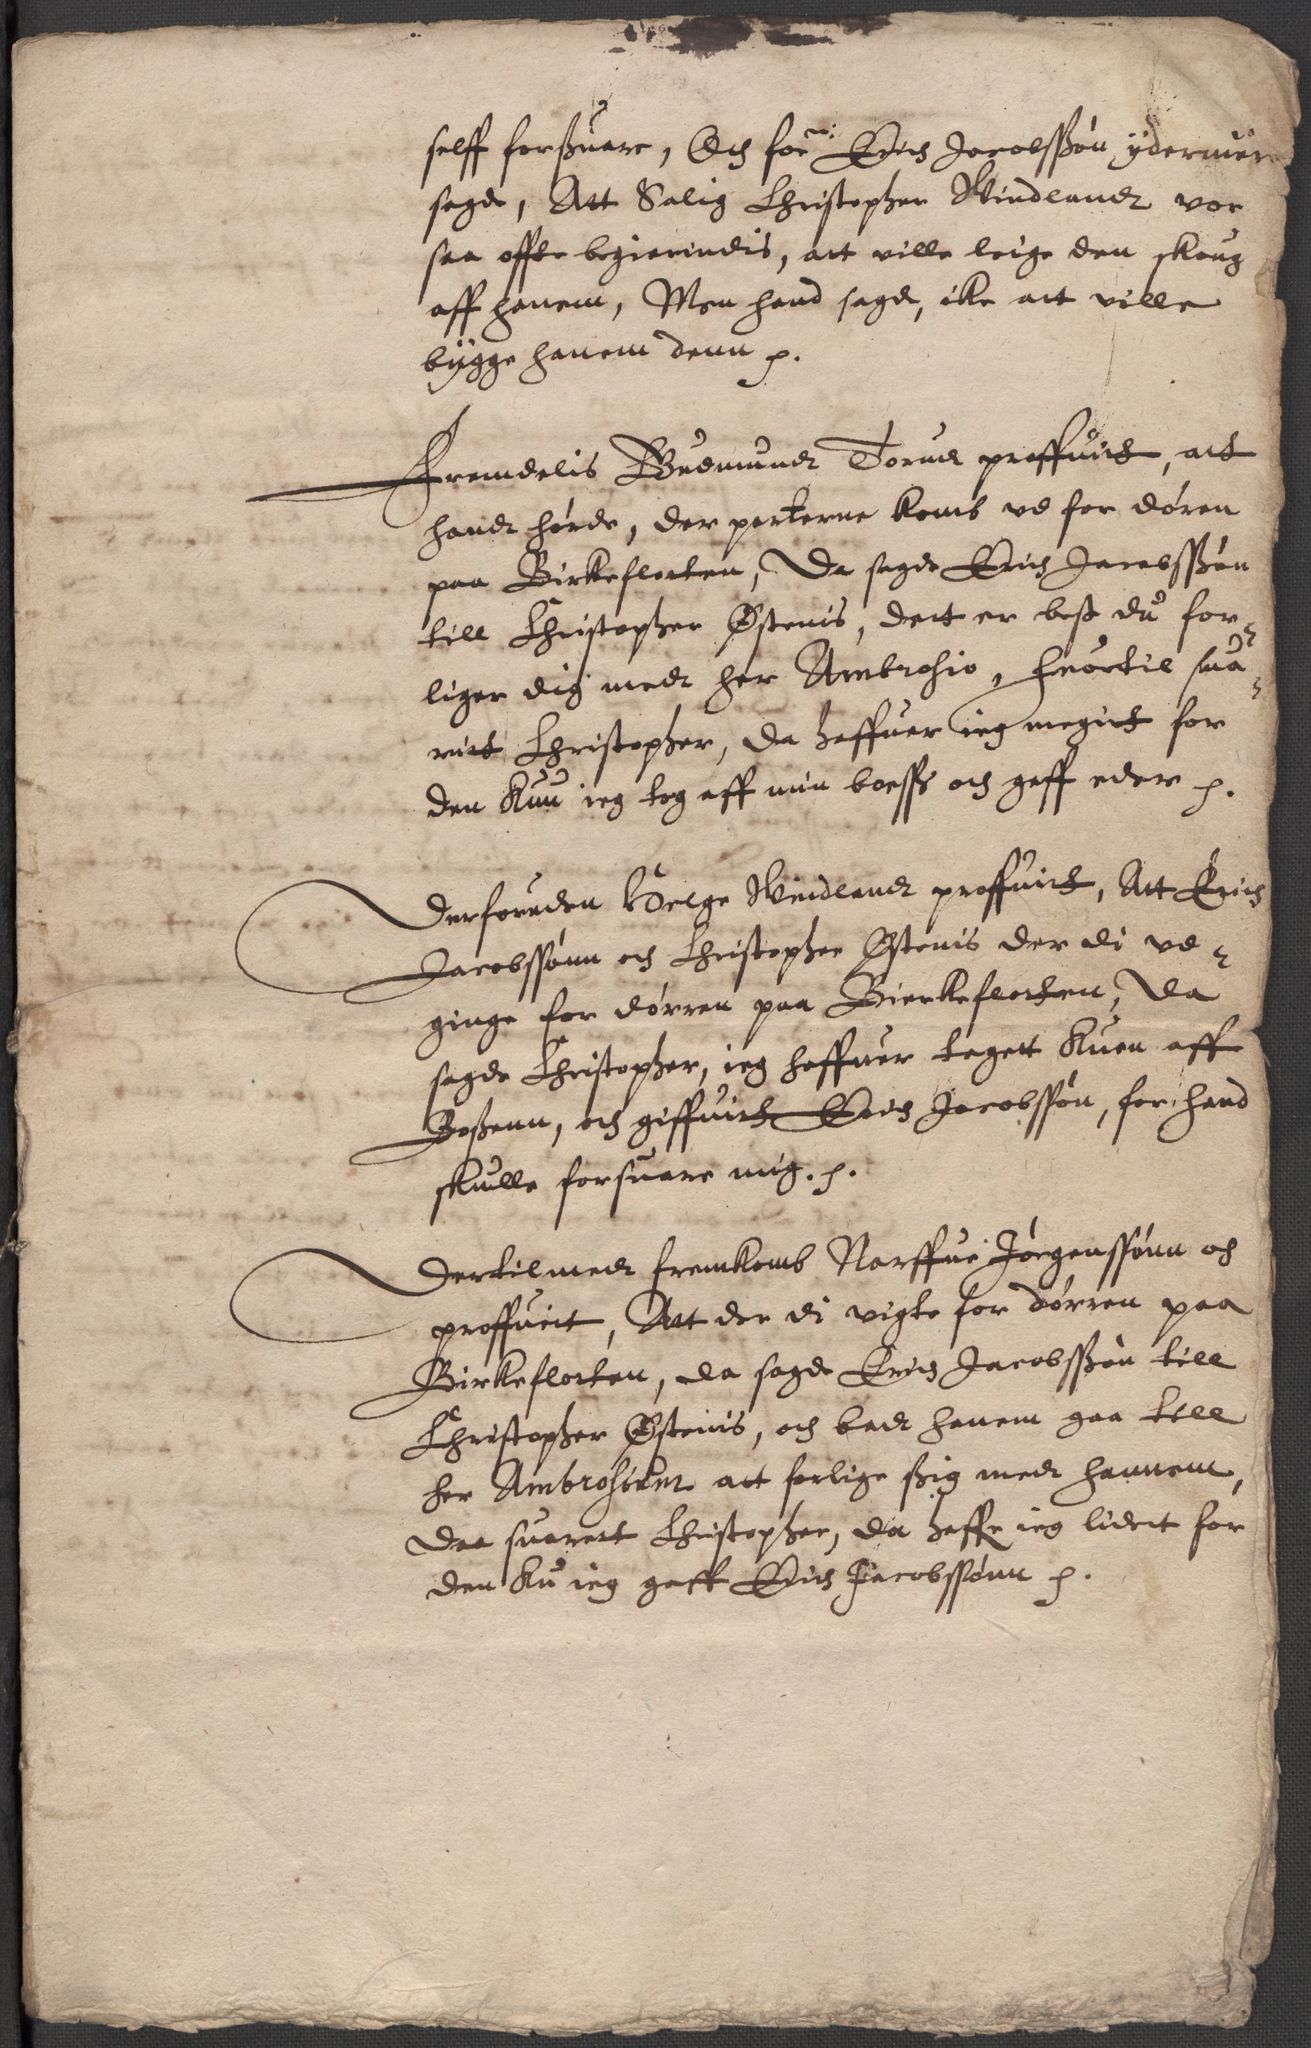 selff forßuare, Och for:ne Erich Jacobssøn ydermere
sagde, Att Salig Christopher Windlandt var
saa offte begierindis, att ville leige den skoug
aff hanem, Men hand sagde, ike att ville
bÿgge hanem denn p.
Fremdelis Gudmundt Torud proffuidt, att
handt hørde, der parterne komb ud for døren
paa Birkeflotten, Da sagde Erich Jacobssøn
till Christopher Østenis, dett er best du for-
liger dig medt her Ambrosio, huortil sua-
ritt Christopher, da haffuer ieg megitt for
den Kuu ieg tog aff min boess och gaff eder p.
Derforuden Helge Windlandt proffuidt, Att Erich
Jacobssønn och Christopher Østenis der di ud-
ginge for dørren paa Bierkeflotten, Da
sagde Christopher, ieg haffuer tagett Kuen aff
Boßenn, och giffuitt Erich Jacobssøn, for hand
skulle forsuare mig. p.
Dertilmedt fremkomb Narffue Jørgenssønn och
proffuit, Att der di vigte for dørren paa
Birkeflotten, da sagde Erich Jacobssøn till
Christopher Østenis, och badt hanem gaa till
her Ambrosium att forlige ßig medt hannem,
Daa suarett Christopher, da haffr ieg lidet for
den Ku ieg gaff Erich Jacobssønn p.